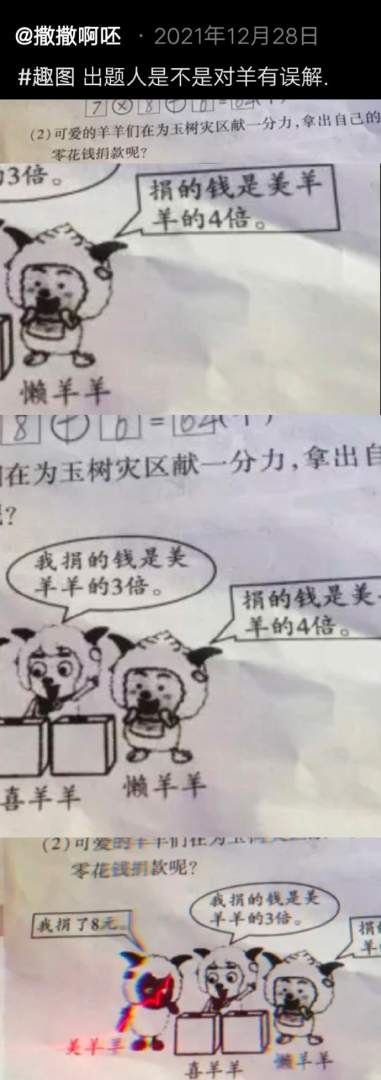 @撒撒啊呸 · 2021年12月28日
#趣图 出题人是不是对羊有误解.
7 × 8 + 6 =
(2)可爱的羊羊们在为玉树灾区献一分力,拿出自己的
零花钱捐款呢?
3倍。
捐的钱是美羊
羊的4倍。
懒羊羊
8 + 6 = 64
在为玉树灾区献一分力,拿出自
?
我捐的钱是美
羊羊的3倍。
捐的钱是美
羊的4倍。
喜羊羊
懒羊羊
(2)可爱的羊羊们在为玉树灾
零花钱捐款呢?
我捐了8元。
我捐的钱是美
羊羊的3倍。
捐
羊
美羊羊
喜羊羊
懒羊羊